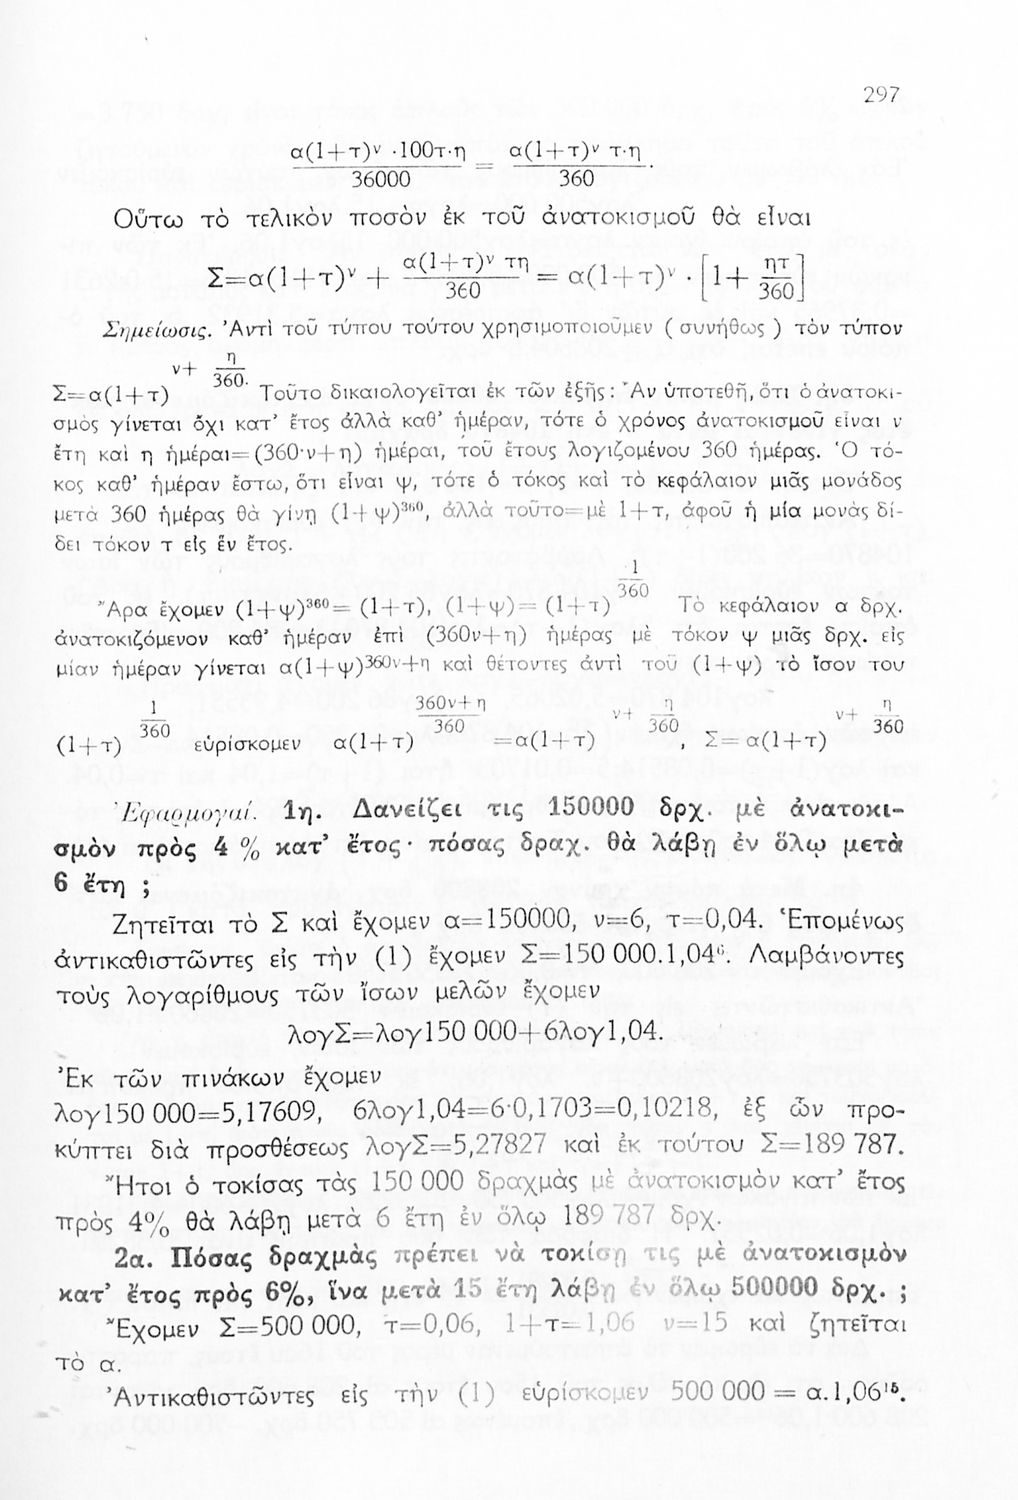 297
α(1+τ)ᵛ ·100τ·η / 36000 = α(1+τ)ᵛ τ·η / 360 .
Οὕτω τὸ τελικὸν ποσὸν ἐκ τοῦ ἀνατοκισμοῦ θὰ εἶναι
Σ=α(1+τ)ᵛ + α(1+τ)ᵛ τη / 360 = α(1+τ)ᵛ · [1+ ητ / 360]
Σημείωσις. Ἀντὶ τοῦ τύπου τούτου χρησιμοποιοῦμεν ( συνήθως ) τὸν τύπον
Σ=α(1+τ)^(ν+ η/360). Τοῦτο δικαιολογεῖται ἐκ τῶν ἑξῆς : Ἂν ὑποτεθῇ, ὅτι ὁ ἀνατοκι-
σμὸς γίνεται ὄχι κατ’ ἔτος ἀλλὰ καθ’ ἡμέραν, τότε ὁ χρόνος ἀνατοκισμοῦ εἶναι ν
ἔτη καὶ η ἡμέραι=(360·ν+η) ἡμέραι, τοῦ ἔτους λογιζομένου 360 ἡμέρας. Ὁ τό-
κος καθ’ ἡμέραν ἔστω, ὅτι εἶναι ψ, τότε ὁ τόκος καὶ τὸ κεφάλαιον μιᾶς μονάδος
μετὰ 360 ἡμέρας θὰ γίνῃ (1+ψ)³⁶⁰, ἀλλὰ τοῦτο=μὲ 1+τ, ἀφοῦ ἡ μία μονὰς δί-
δει τόκον τ εἰς ἓν ἔτος.
Ἄρα ἔχομεν (1+ψ)³⁶⁰= (1+τ), (1+ψ)= (1+τ)^(1/360) Τὸ κεφάλαιον α δρχ.
ἀνατοκιζόμενον καθ’ ἡμέραν ἐπὶ (360ν+η) ἡμέρας μὲ τόκον ψ μιᾶς δρχ. εἰς
μίαν ἡμέραν γίνεται α(1+ψ)^(360ν+η) καὶ θέτοντες ἀντὶ τοῦ (1+ψ) τὸ ἴσον του
(1+τ)^(1/360) εὑρίσκομεν α(1+τ)^((360ν+η)/360) =α(1+τ)^(ν+ η/360), Σ=α(1+τ)^(ν+ η/360)
Ἐφαρμογαί. 1η. Δανείζει τις 150000 δρχ. μὲ ἀνατοκι-
σμὸν πρὸς 4 % κατ’ ἔτος· πόσας δραχ. θὰ λάβῃ ἐν ὅλῳ μετὰ
6 ἔτη ;
Ζητεῖται τὸ Σ καὶ ἔχομεν α=150000, ν=6, τ=0,04. Ἑπομένως
ἀντικαθιστῶντες εἰς τὴν (1) ἔχομεν Σ=150 000.1,04⁶. Λαμβάνοντες
τοὺς λογαρίθμους τῶν ἴσων μελῶν ἔχομεν
λογΣ=λογ150 000+6λογ1,04.
Ἐκ τῶν πινάκων ἔχομεν
λογ150 000=5,17609, 6λογ1,04=6·0,1703=0,10218, ἐξ ὧν προ-
κύπτει διὰ προσθέσεως λογΣ=5,27827 καὶ ἐκ τούτου Σ=189 787.
Ἤτοι ὁ τοκίσας τὰς 150 000 δραχμὰς μὲ ἀνατοκισμὸν κατ’ ἔτος
πρὸς 4% θὰ λάβῃ μετὰ 6 ἔτη ἐν ὅλῳ 189 787 δρχ.
2α. Πόσας δραχμὰς πρέπει νὰ τοκίσῃ τις μὲ ἀνατοκισμὸν
κατ’ ἔτος πρὸς 6%, ἵνα μετὰ 15 ἔτη λάβῃ ἐν ὅλῳ 500000 δρχ. ;
Ἔχομεν Σ=500 000, τ=0,06, 1+τ=1,06 ν=15 καὶ ζητεῖται
τὸ α.
Ἀντικαθιστῶντες εἰς τὴν (1) εὑρίσκομεν 500 000 = α.1,06¹⁵.